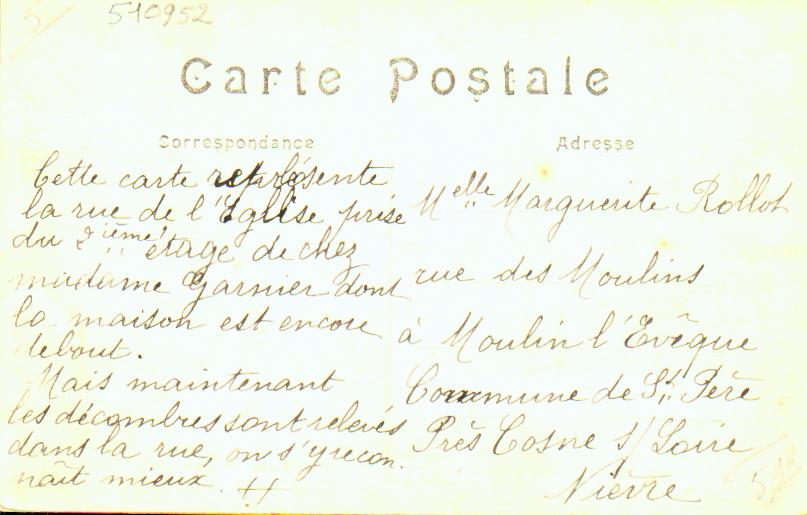 510952
Carte Postale
Correspondance
Cette carte représente
la rue de l'Eglise prise
du 2ième étage de chez
madame Garnier dont
la maison est encore
debout.
Mais maintenant
les décombres sont relevés
dans la rue, on s'y recon.
naît mieux. !!
Adresse
Melle Marguerite Rollot
rue des Moulins
à Moulin l'Evêque
Commune de St. Père
Près Cosne s/Loire
Nièvre